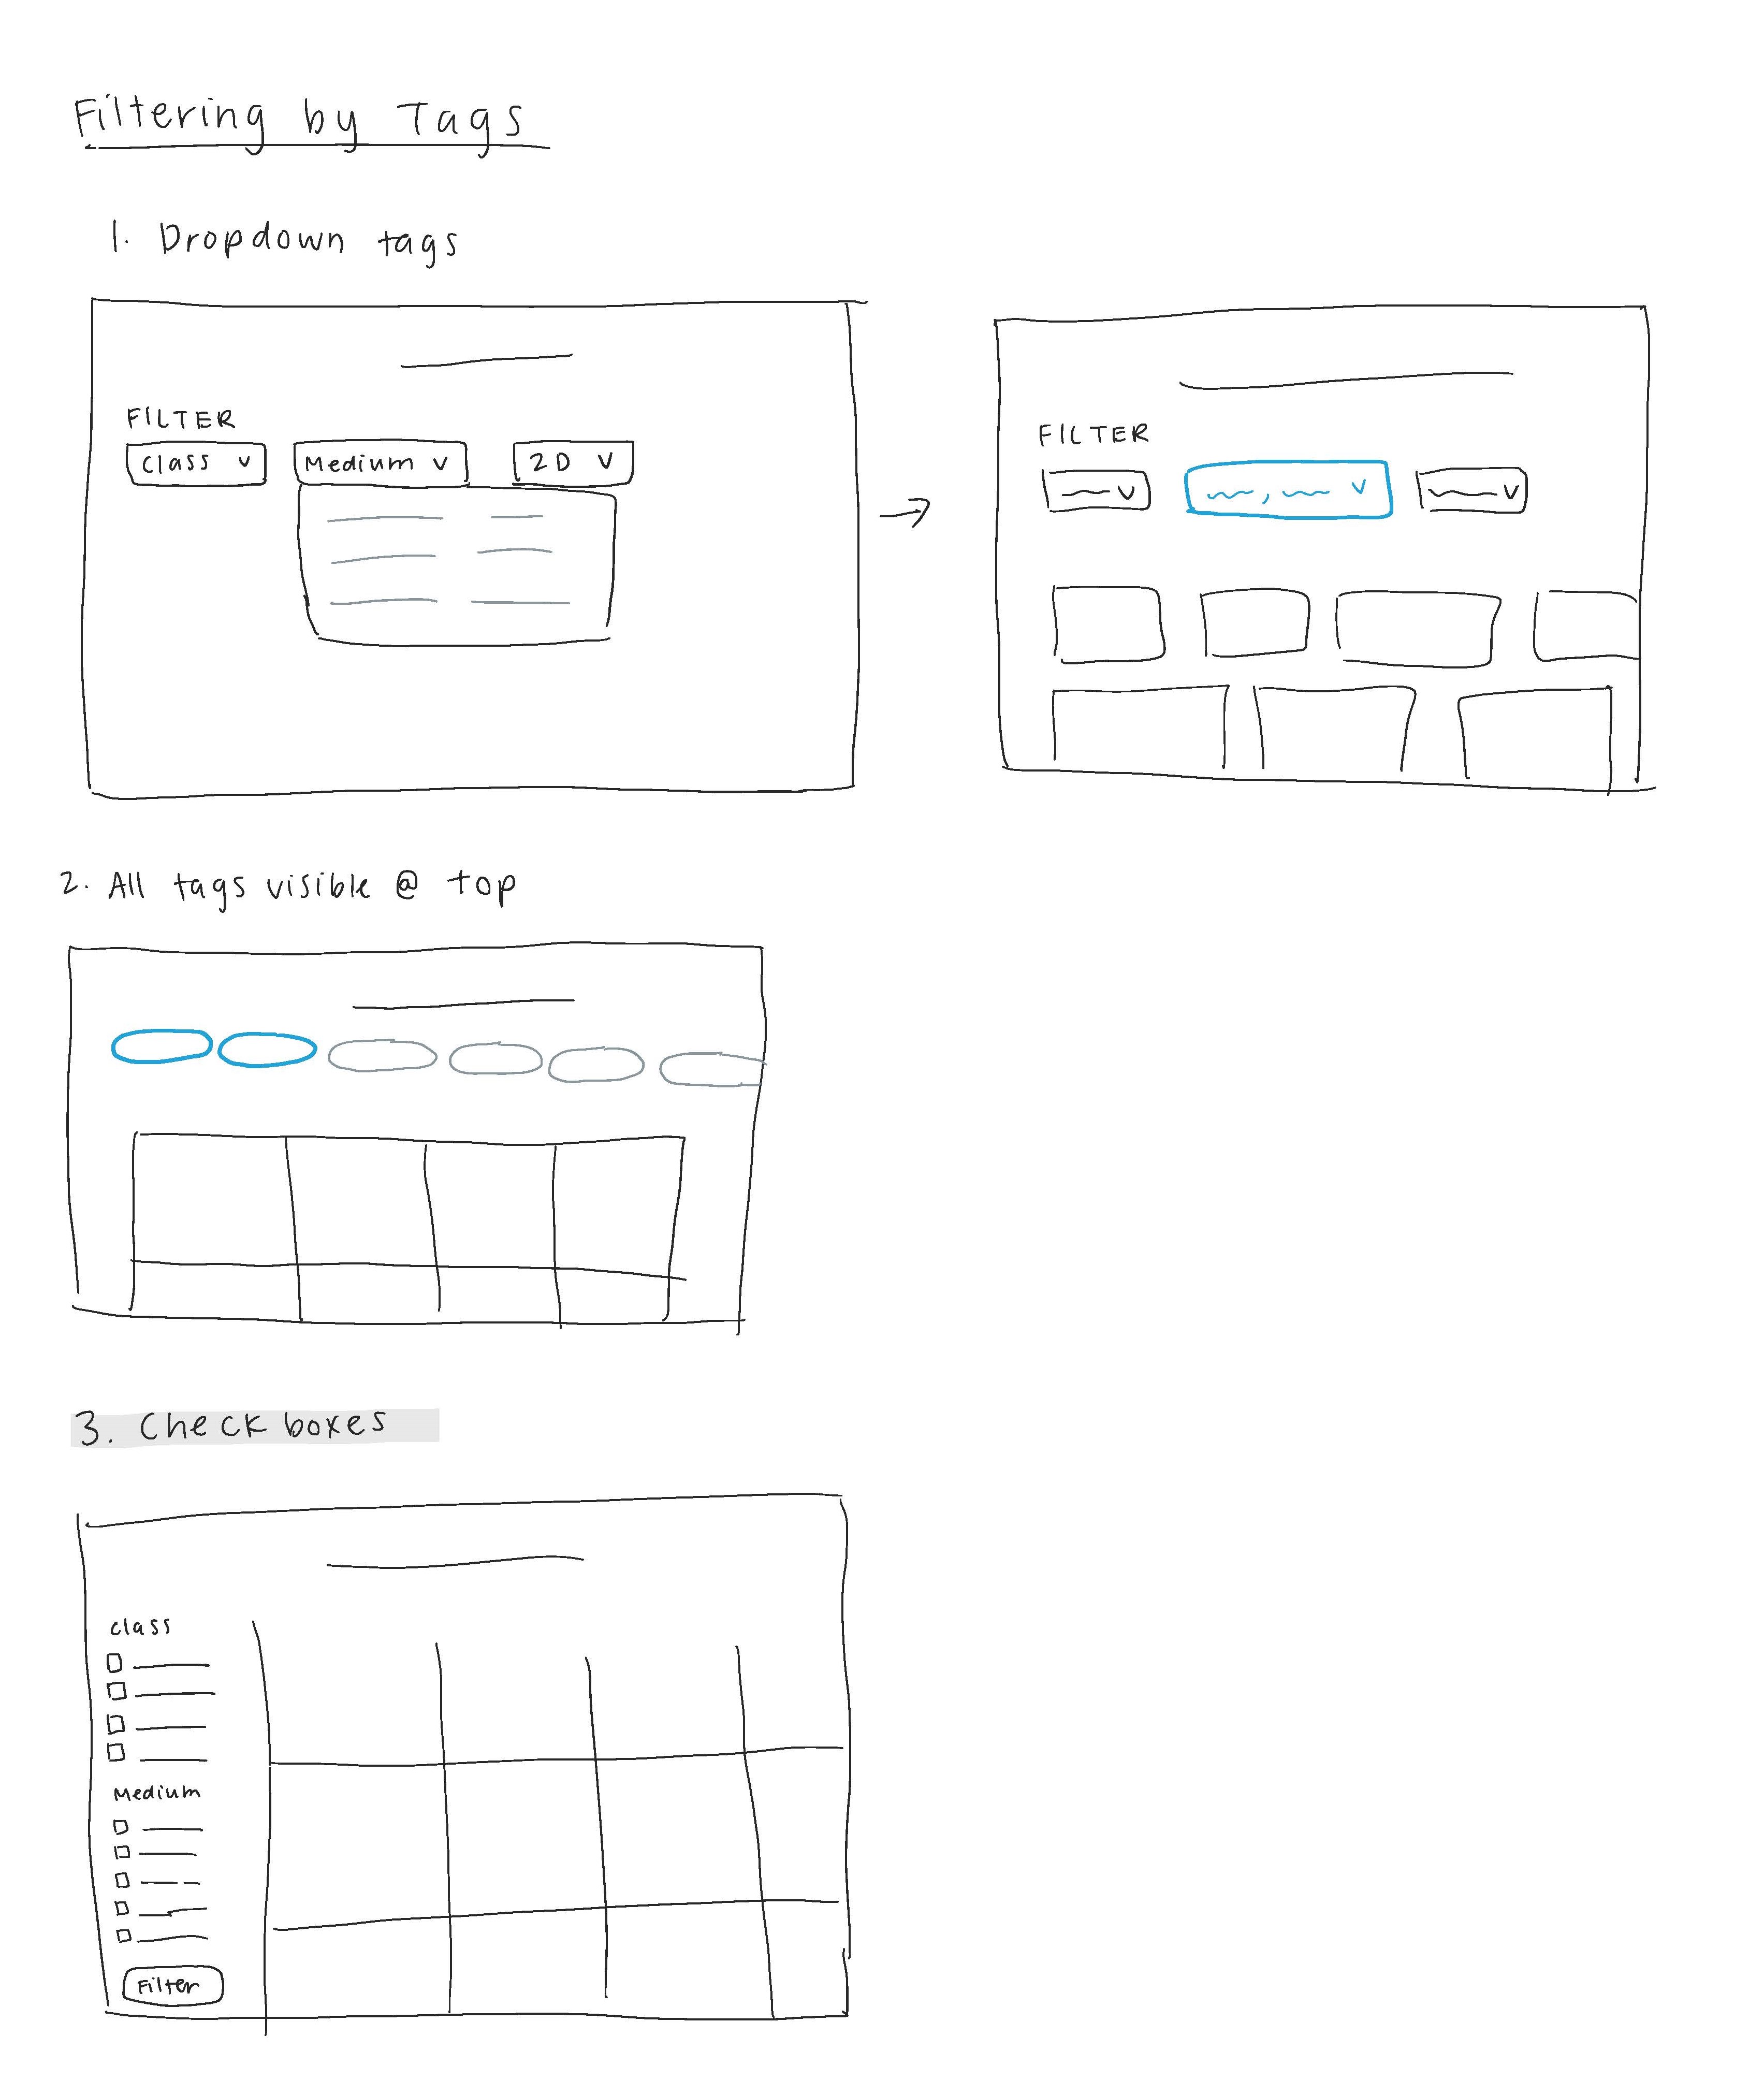 Filtering by Tags
1. Dropdown tags
FILTER
Class v
Medium v
2D v
FILTER
2. All tags visible @ top
3. Check boxes
Class
Medium
Filter